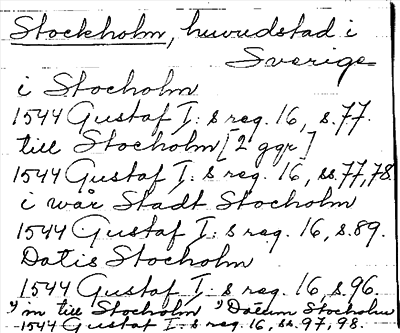 Stockholm, huvudstad i
Sverige
i Stocholm
1544 Gustaf I: s reg. 16, s. 77.
till Stocholm [2 ggr]
1544 Gustaf I: s reg. 16, ss. 77, 78.
i wår Stadt Stocholm
1544 Gustaf I: s reg. 16, s. 89.
Datis Stocholm
1544 Gustaf I: s reg. 16, s. 96.
till Stocholm Datum Stocholm
1544 Gustaf I: s reg. 16, ss. 97, 98.